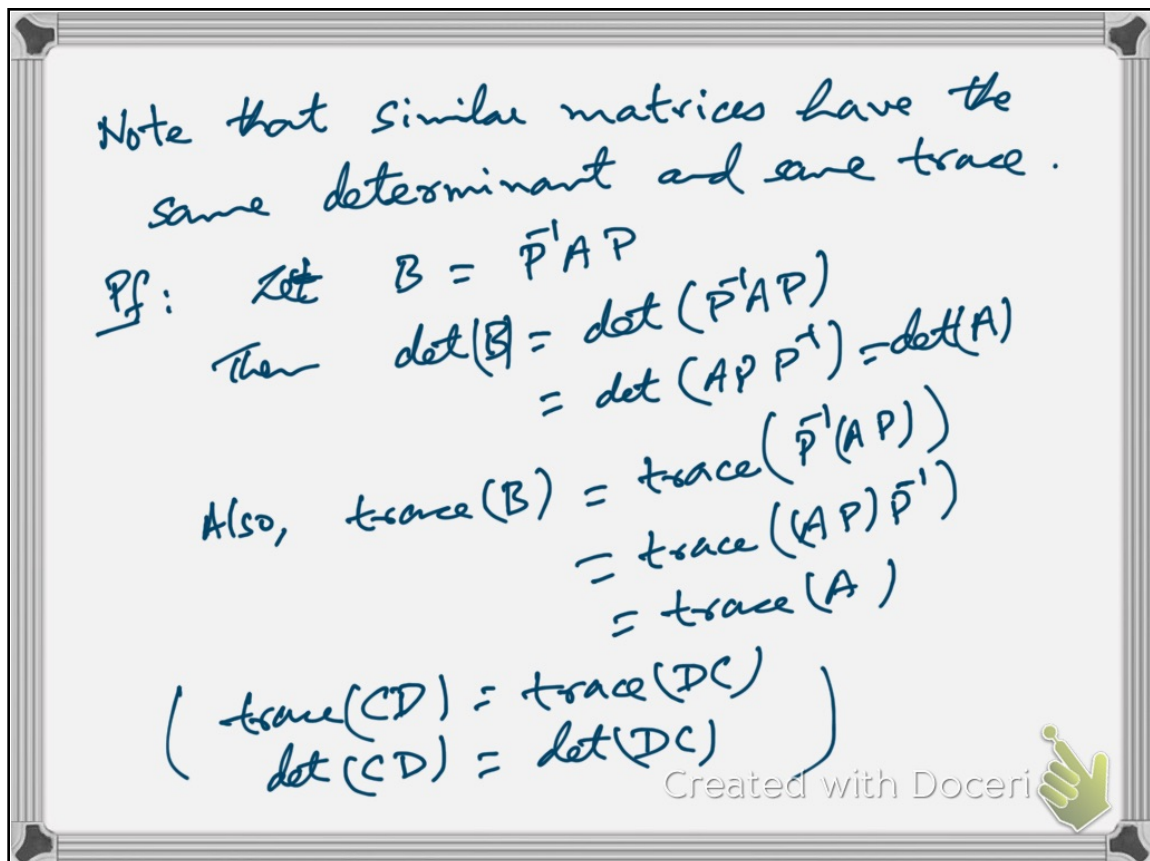 Note that similar matrices have the
same determinant and same trace.
Pf: Let B = P⁻¹AP
Then det(B) = det (P⁻¹AP)
= det (AP P⁻¹) = det(A)
Also, trace(B) = trace(P⁻¹(AP))
= trace((AP)P⁻¹)
= trace(A)
( trace(CD) = trace(DC)
det(CD) = det(DC) )
Created with Doceri